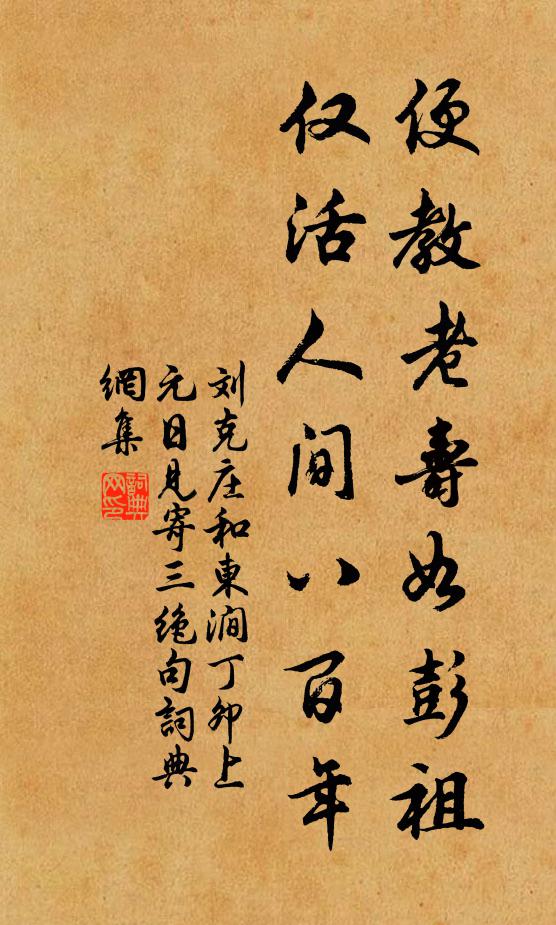 便教老壽如彭祖
仅活人间八百年
刘克庄和東澗丁卯上
元日見寄三絶句詞典
網集
詞典
网印